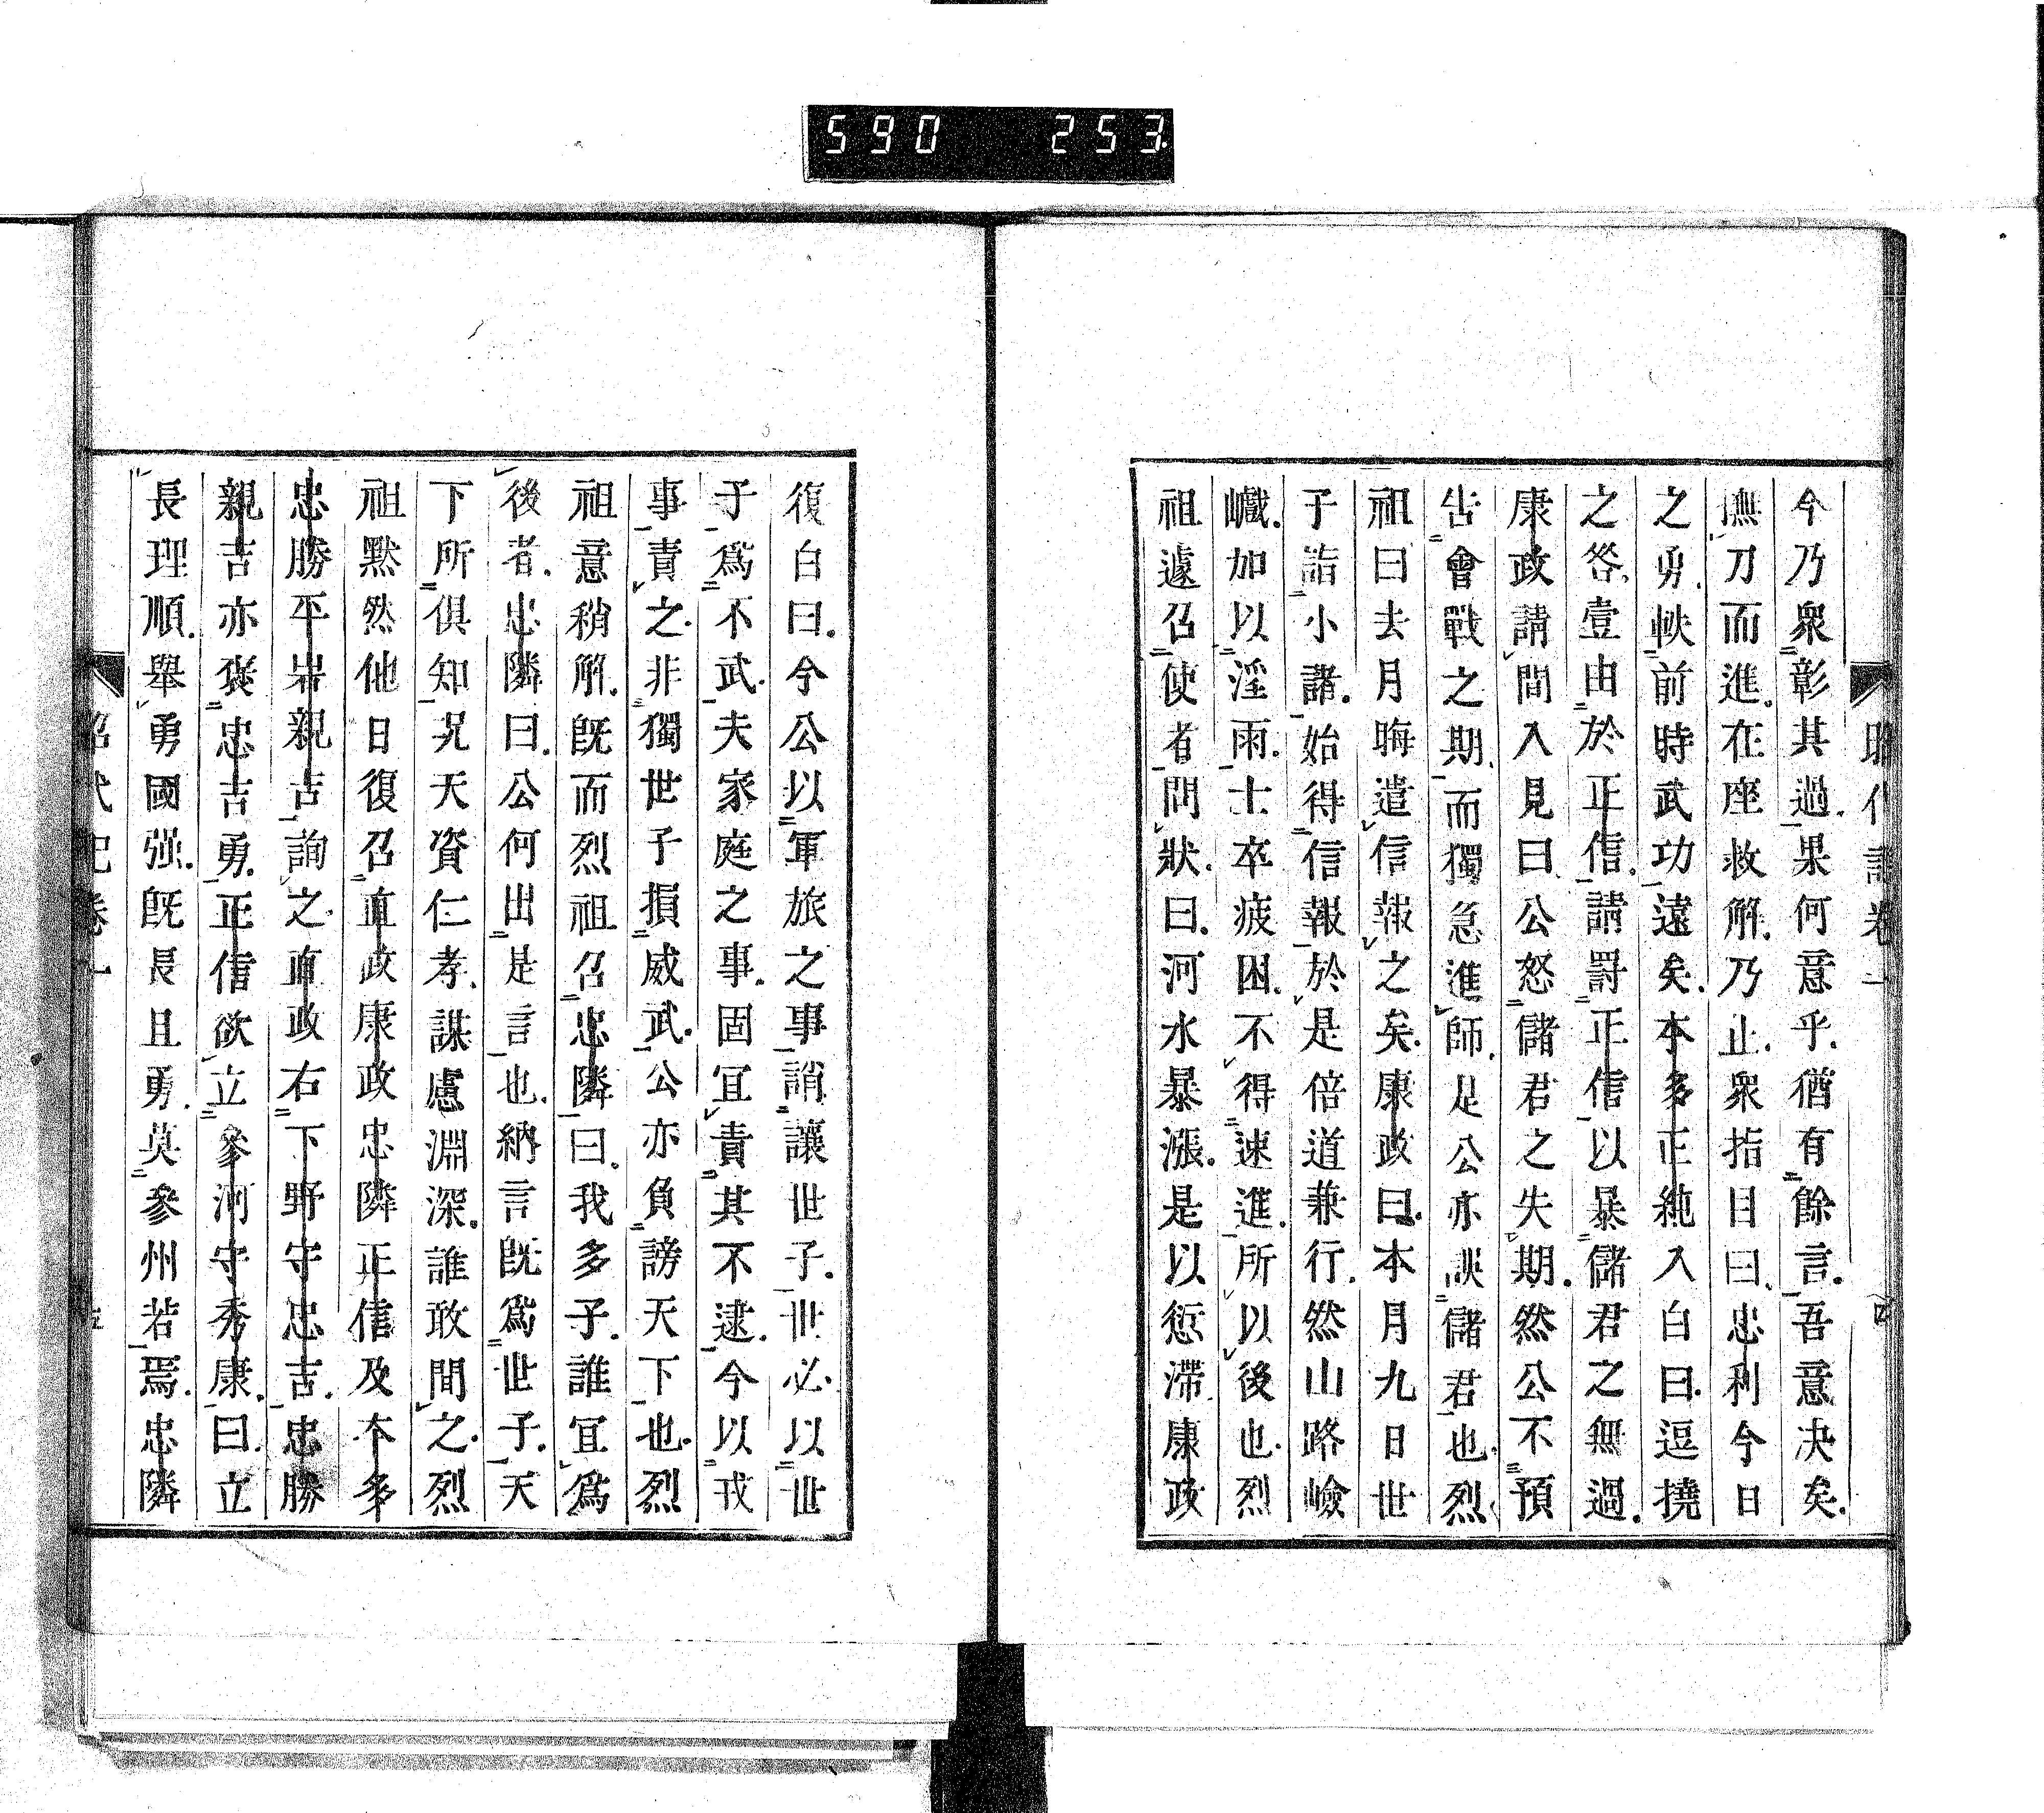 590 253
今乃衆彰其過果何意乎猶有餘言吾意決矣
撫刀而進在座救解乃止衆指目曰忠利今日
之勇軼前時武功遠矣本多正純入白曰逗撓
之咎壹由於正信請罸正信以暴儲君之無過
康政請間入見曰公怒儲君之失期然公不預
告會戰之期而獨急進師是公亦誤儲君也烈
祖曰去月晦遣信報之矣康政曰本月九日世
子詣小諸始得信報於是倍道兼行然山路嶮
巇加以淫雨士卒疲困不得速進所以後也烈
祖遽召使者問狀曰河水暴漲是以愆滯康政
復白曰今公以軍旅之事誚讓世子世必以世
子爲不武夫家庭之事固冝責其不逮今以戎
事責之非獨世子損威武公亦負謗天下也烈
祖意稍解既而烈祖召忠隣曰我多子誰冝爲
後者忠隣曰公何出是言也納言既爲世子天
下所俱知况天資仁孝謀慮淵深誰敢間之烈
祖默然他日復召直政康政忠隣正信及本多
忠勝平岩親吉詢之直政右下野守忠吉忠勝
親吉亦襃忠吉勇正信欲立參河守秀康曰立
長理順舉勇國强既長且勇莫參州若焉忠隣